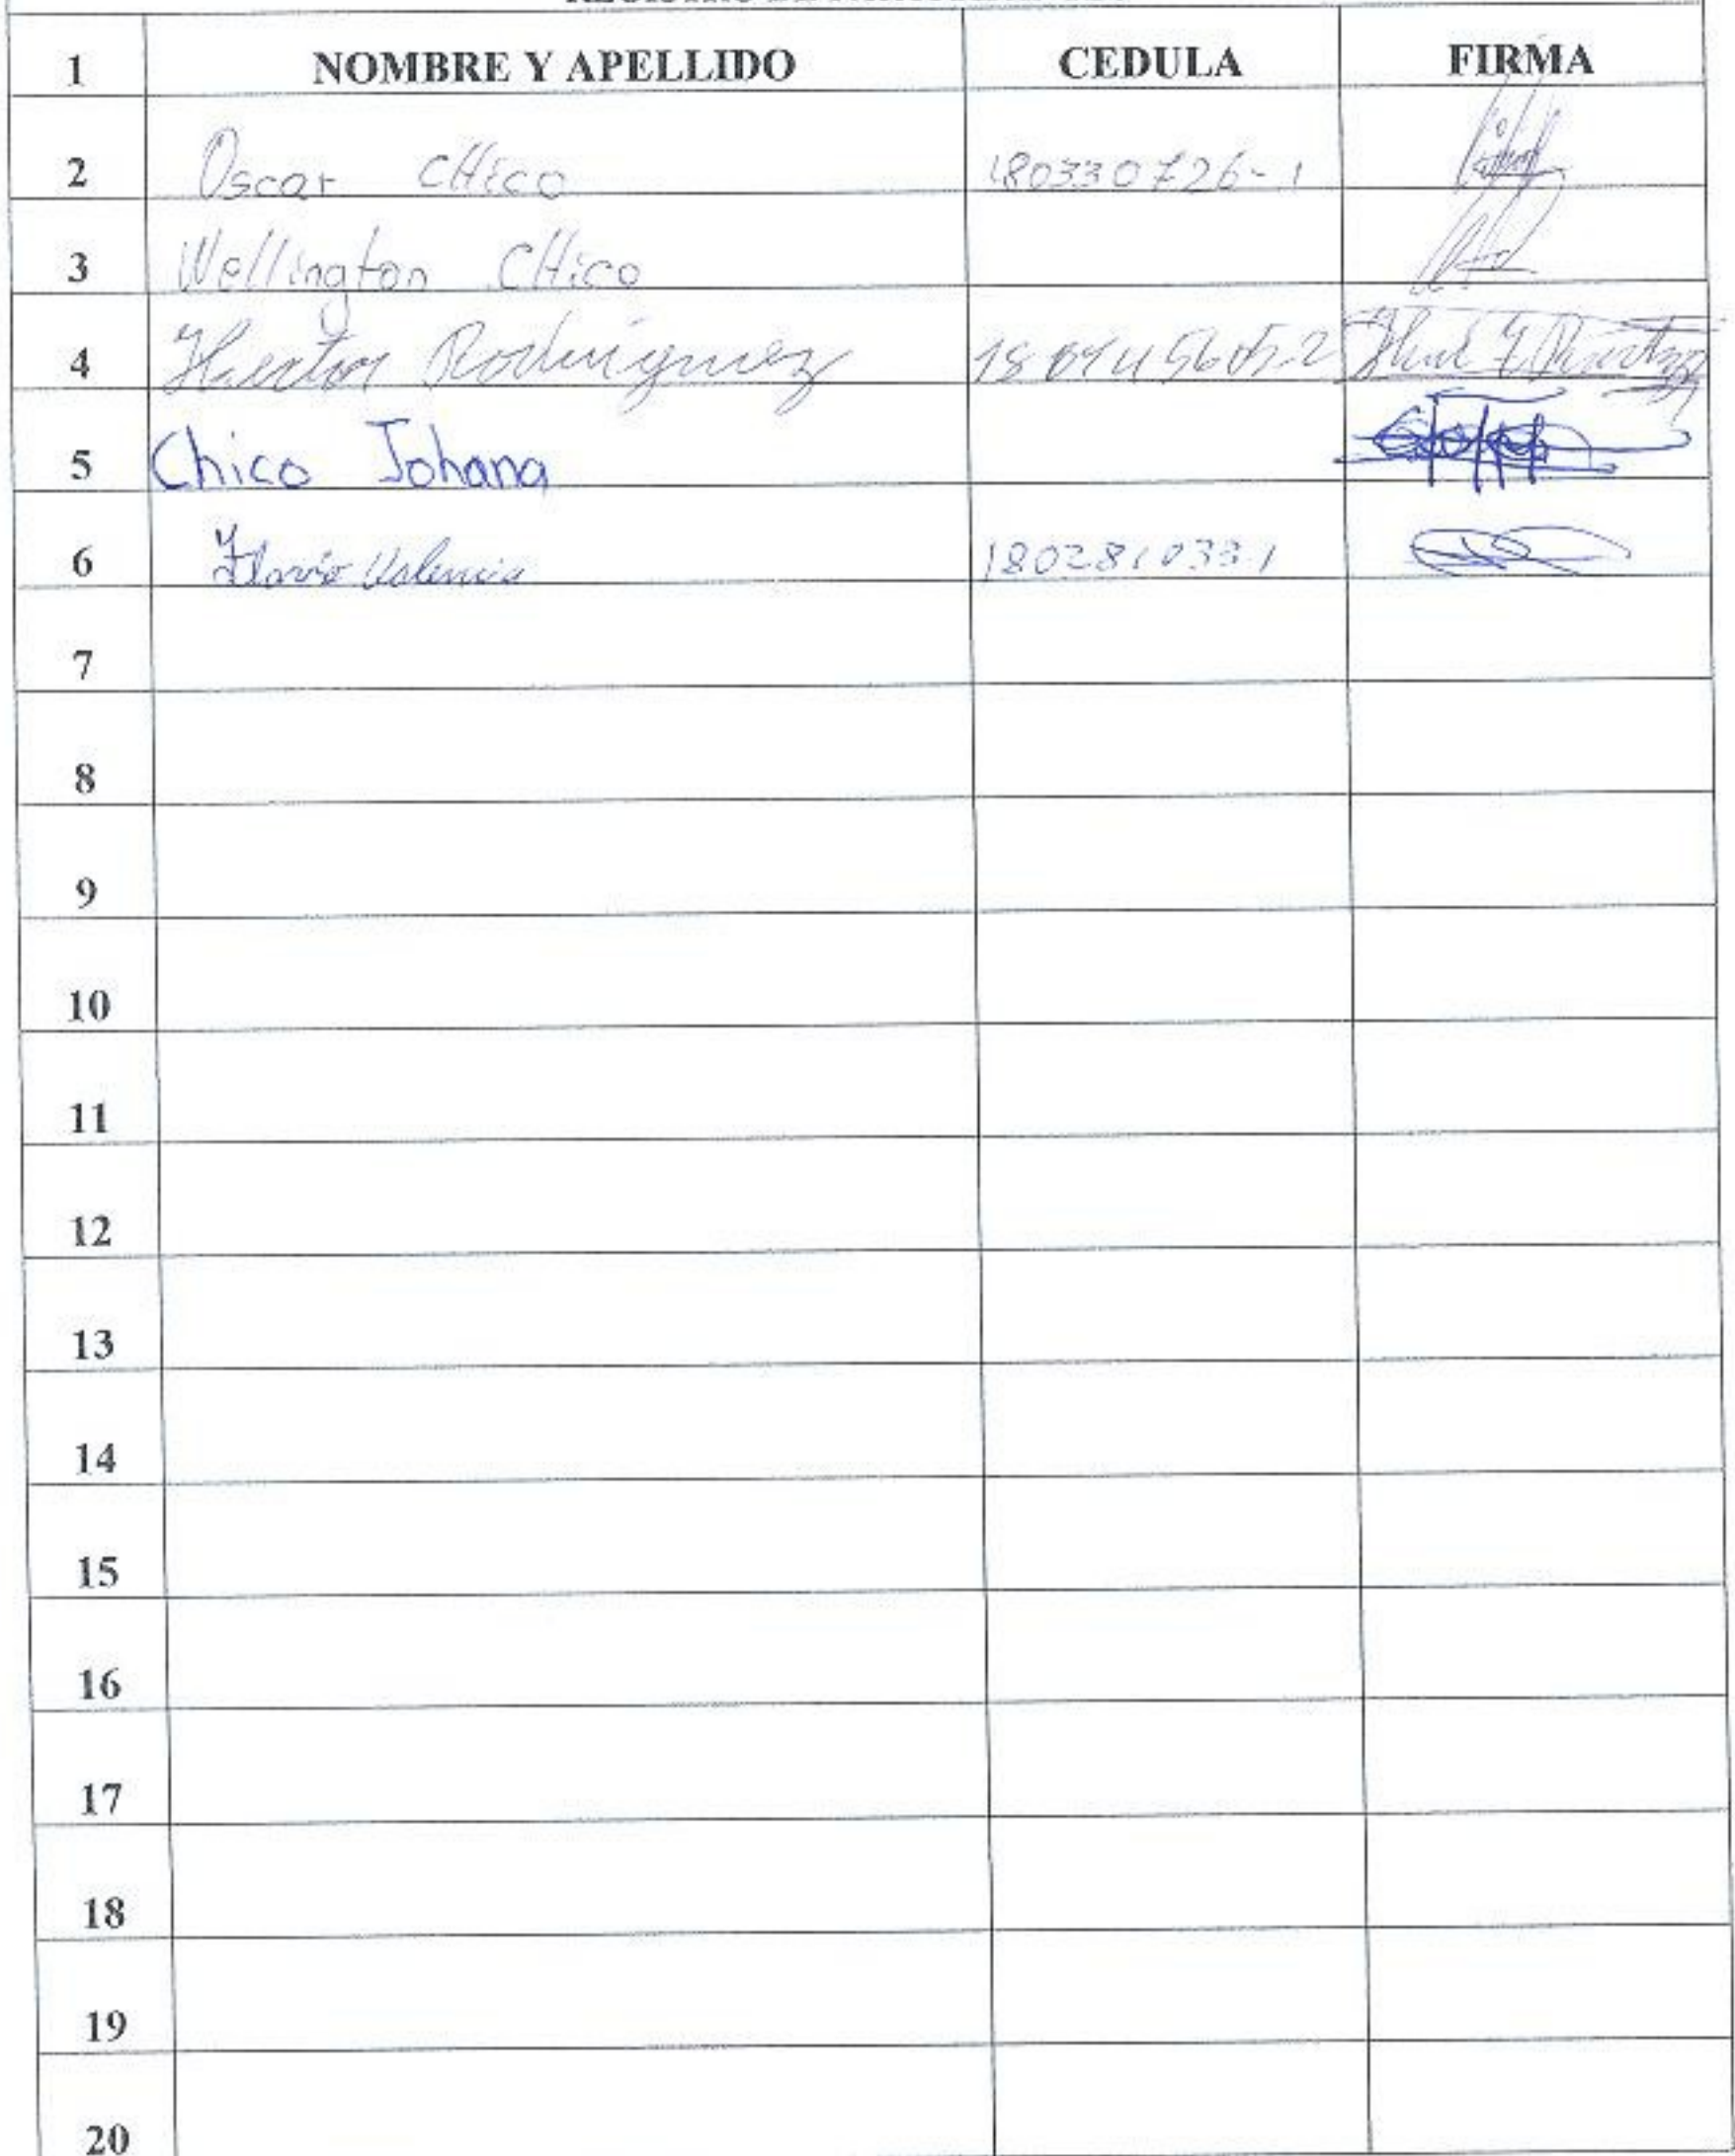 1 NOMBRE Y APELLIDO CEDULA FIRMA
2 Oscar CHico 180330726-1
3 Wellington CHico
4 Rodriguez
5 Chico Johana
6 Valencia 180281033-1
7
8
9
10
11
12
13
14
15
16
17
18
19
20